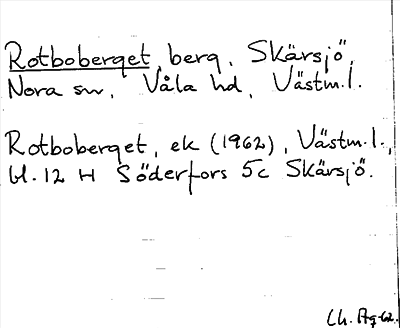 Rotboberget, berg, Skärsjö,
Nora sn, Våla hd, Västm.l.
Rotboberget, ek (1962), Västm.l.,
bl. 12 H Söderfors 5c Skärsjö.
Ch. Ag-62.